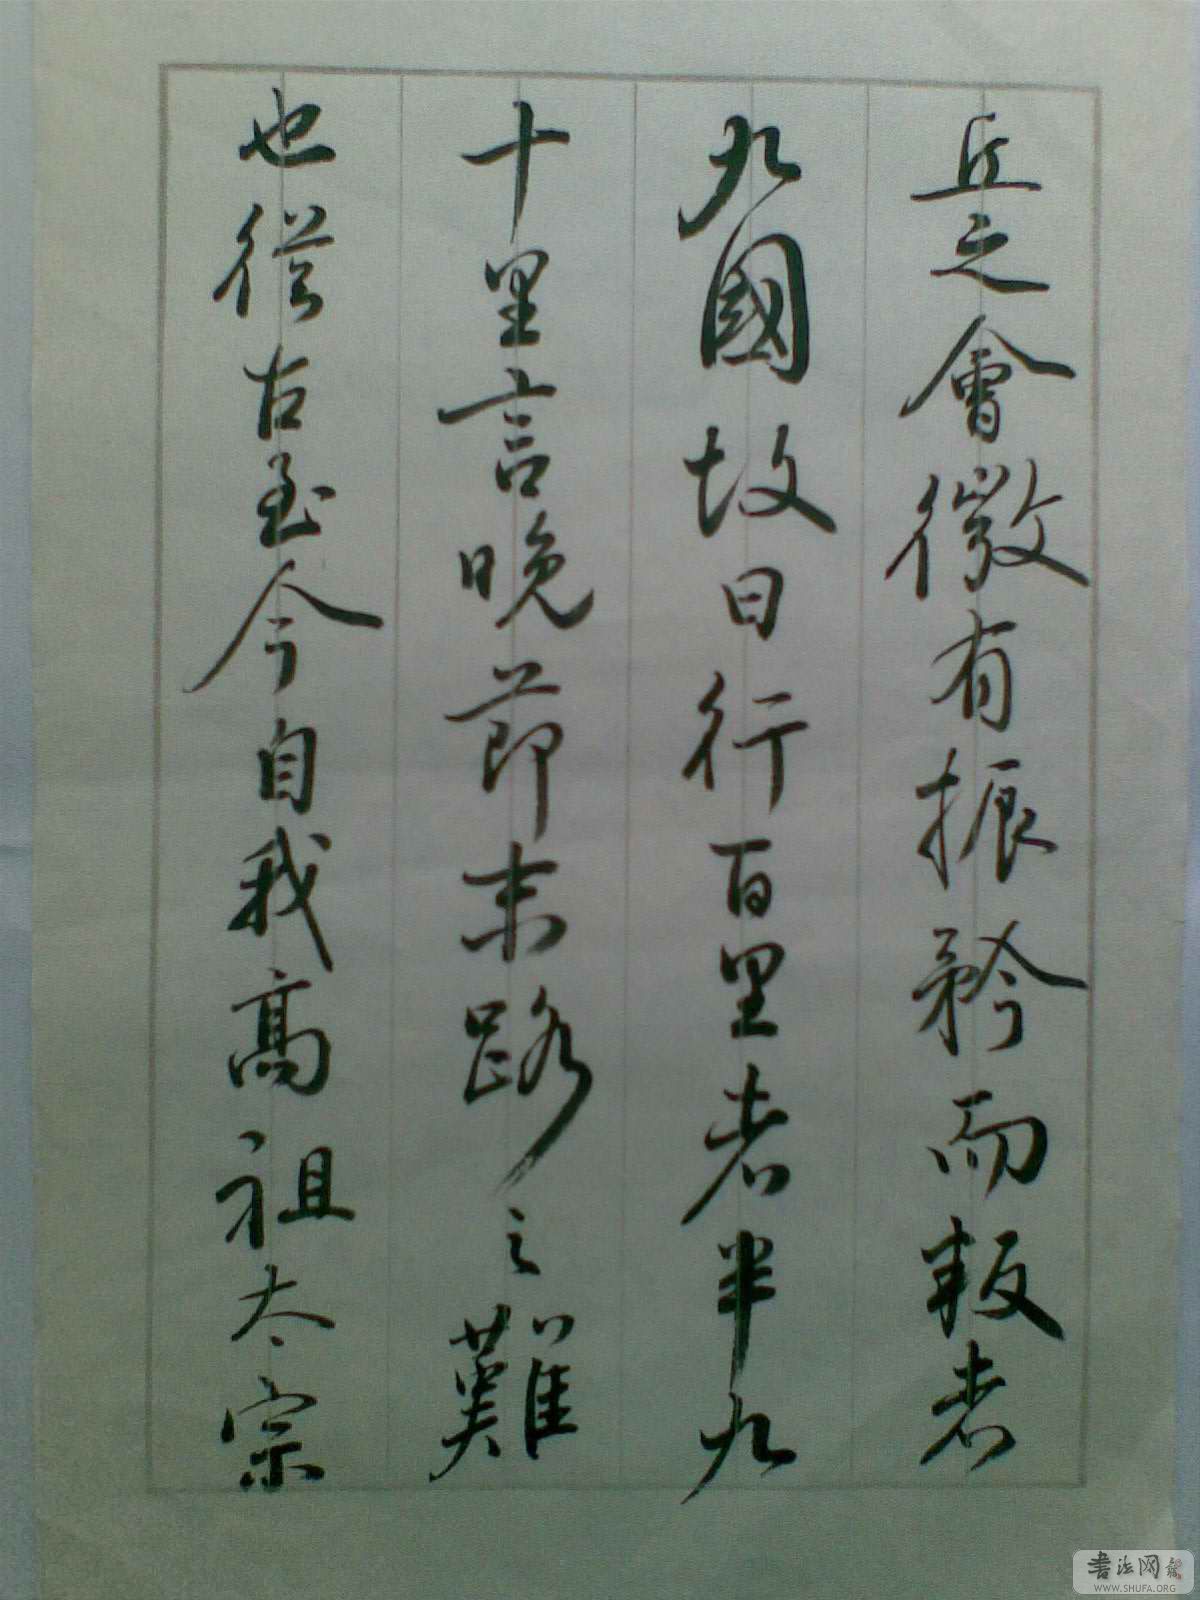 丘之會微有振矜而叛者
九國故曰行百里者半九
十里言晚節末路之難
也從古至今自我高祖太宗
書法网
WWW.SHUFA.ORG